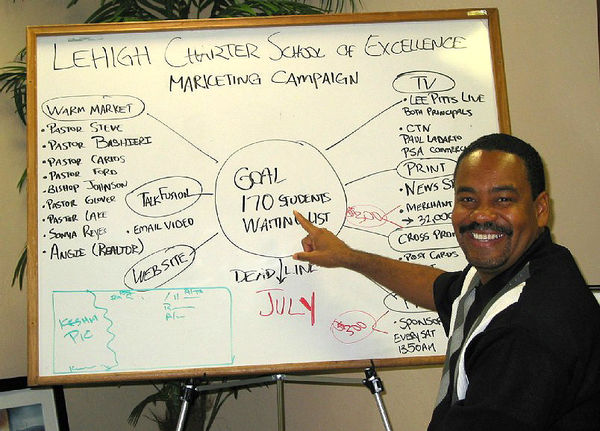 LEHIGH CHARTER SCHOOL OF EXCELLENCE
MARKETING CAMPAIGN
WARM MARKET
• PASTOR STEVE
• PASTOR BASHIERI
• PASTOR CARLOS
• PASTOR FORD
• BISHOP JOHNSON
• PASTOR GLOVER
• PASTOR LAKE
• SONYA REYES
• ANGIE (REALTOR)
TALKFUSION
• EMAIL VIDEO
WEBSITE
KESHIA
PIC
GOAL
170 STUDENTS
WAITING LIST
DEADLINE
JULY
TV
• LEE PITTS LIVE
BOTH PRINCIPALS
• CTN
PAUL LADARTO
PSA COMMERC
PRINT
• NEWS
• MERCHANT
→ 32,000
$300
CROSS PRO
• POST CARDS
$300
• SPONSOR
EVERY SAT
11:50AM